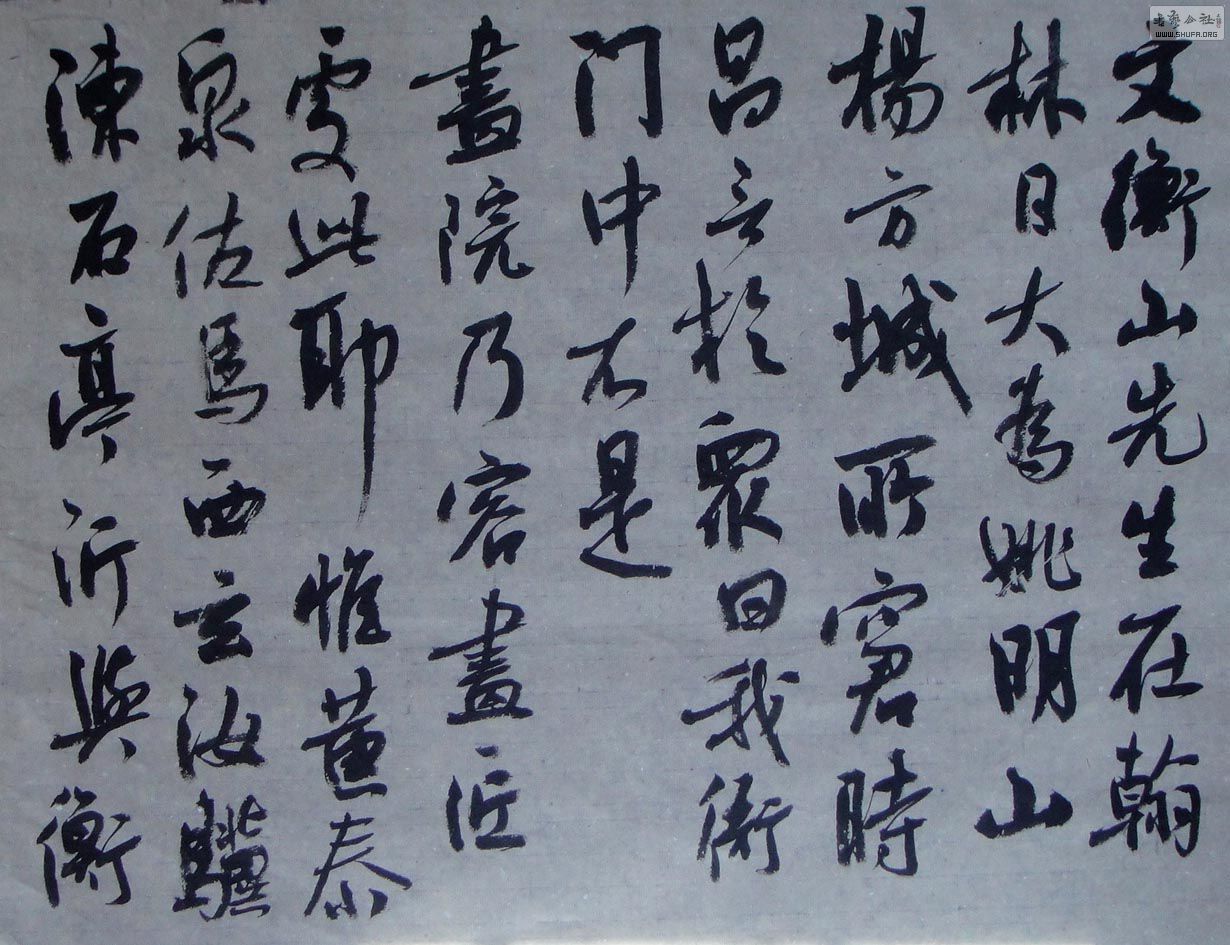 文衡山先生在翰
林日大為姚明山
楊方城所窘時
昌言於眾曰我衙
門中不是
畫院乃容畫匠
處此耶 惟黃泰
泉佐馬西玄汝驥
陳石亭沂與衡
書藝公社
WWW.SHUFA.ORG